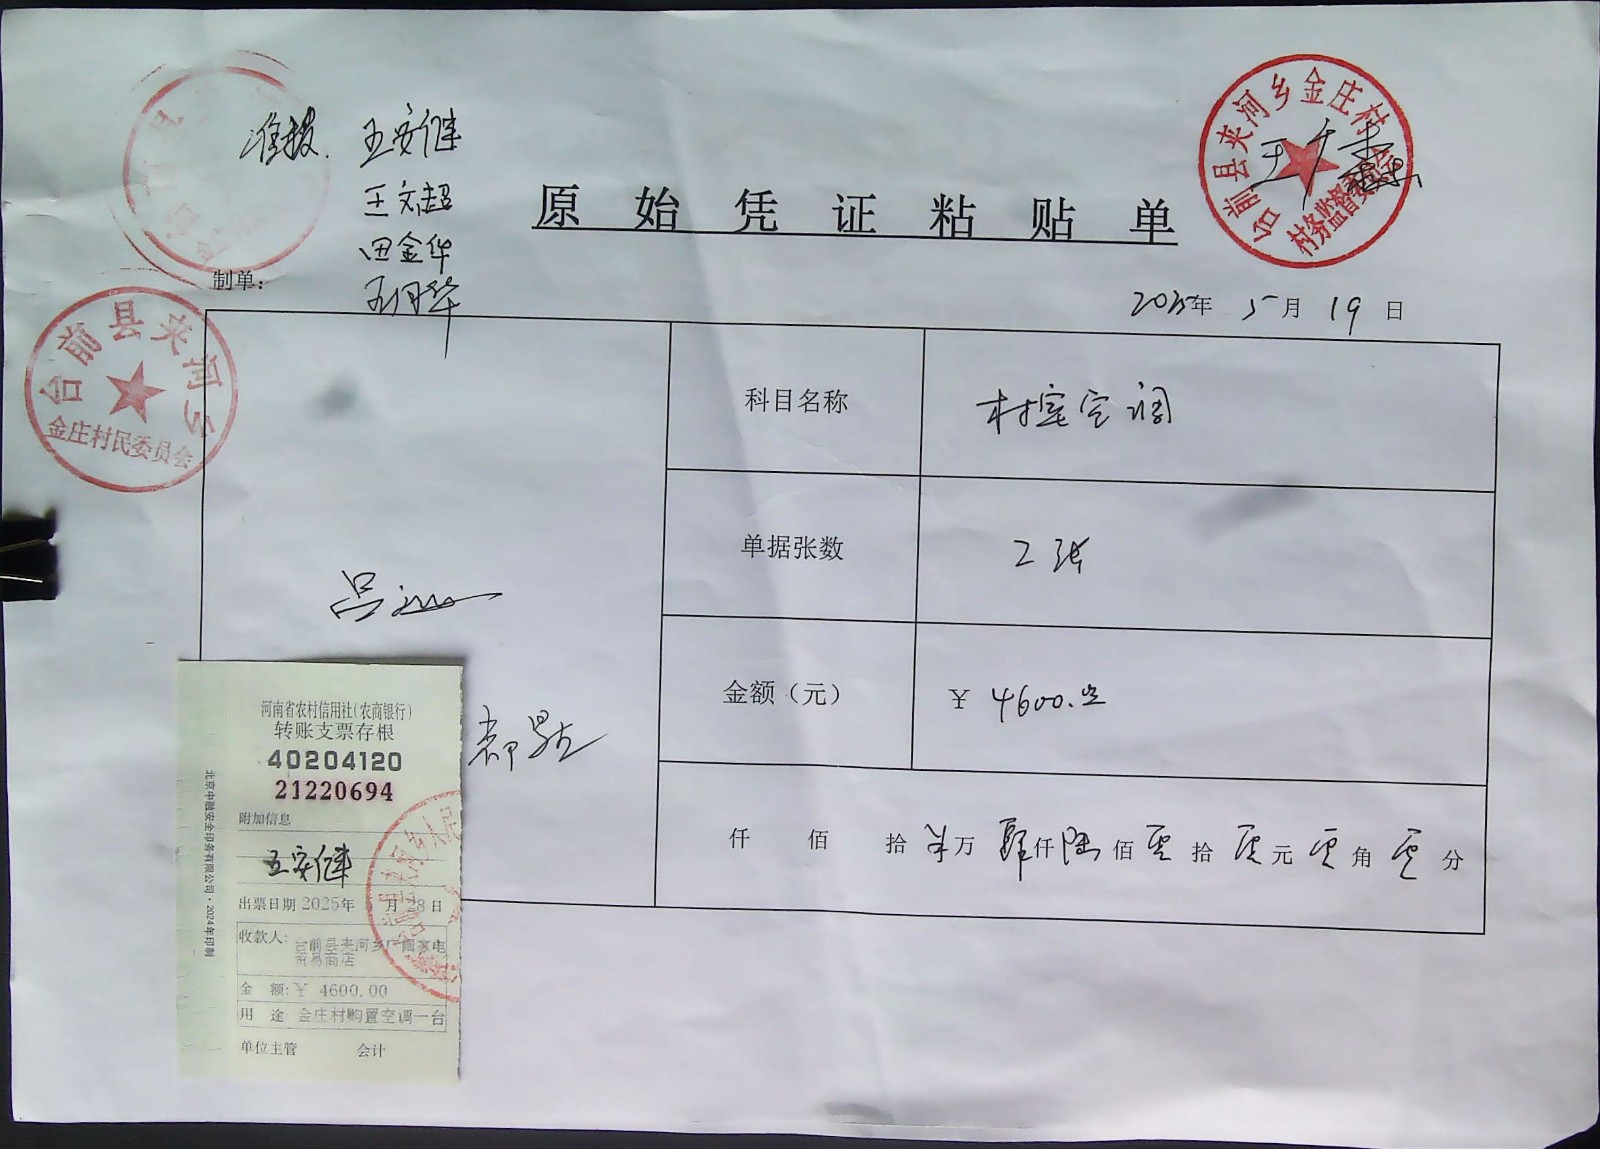 准报. 王安继
王文超
田金华
王月华
原始凭证粘贴单
台前县夹河乡金庄村
村务监督委员会
制单:
2025年 5月 19日
台前县夹河乡
金庄村民委员会
科目名称
村室空调
单据张数
2张
金额（元）
¥ 4600.00
仟 佰 拾 万 肆仟 陆佰 零拾 零元 零角 零分
吕
河南省农村信用社(农商银行)
转账支票存根
40204120
21220694
附加信息
王安继
出票日期 2025年 月 28日
收款人: 台前县夹河乡广 家电
贸易商店
金 额: ¥ 4600.00
用 途 金庄村购置空调一台
单位主管 会计
北京中融安全印务有限公司·2024年印制